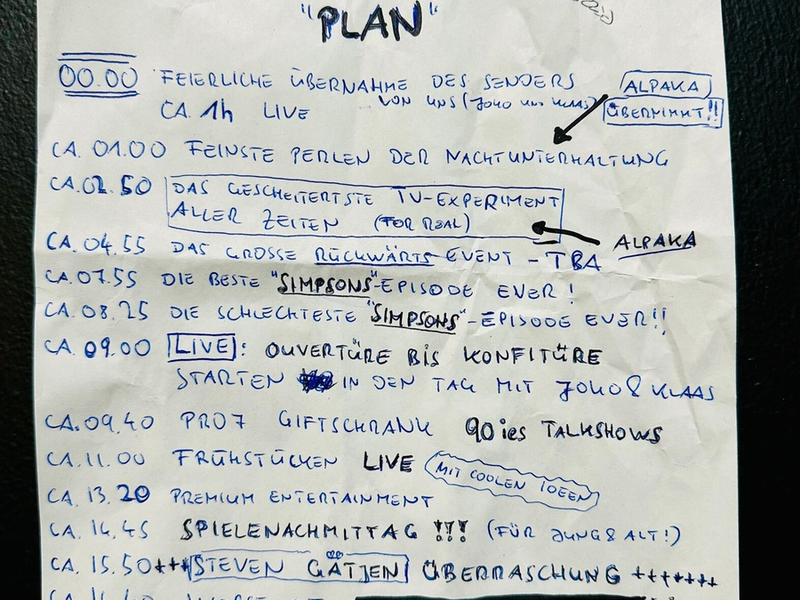 "PLAN"
00.00 FEIERLICHE ÜBERNAHME DES SENDERS
VON UNS (JOKO UND KLAAS)
CA. 1h LIVE
ALPAKA
ÜBERNIMMT!!
CA. 01.00 FEINSTE PERLEN DER NACHTUNTERHALTUNG
CA. 02.50 DAS GESCHEITERTSTE TV-EXPERIMENT
ALLER ZEITEN (FOR REAL)
ALPAKA
CA. 04.55 DAS GROSSE RÜCKWÄRTS EVENT - TBA
CA. 07.55 DIE BESTE "SIMPSONS"-EPISODE EVER!
CA. 08.25 DIE SCHLECHTESTE "SIMPSONS"-EPISODE EVER!!
CA. 09.00 LIVE: OUVERTÜRE BIS KONFITÜRE
STARTEN IN DEN TAG MIT JOKO & KLAAS
CA. 09.40 PRO7 GIFTSCHRANK 90ies TALKSHOWS
CA. 11.00 FRÜHSTÜCKEN LIVE MIT COOLEN IDEEN
CA. 13.20 PREMIUM ENTERTAINMENT
CA. 14.45 SPIELENACHMITTAG !!! (FÜR JUNG & ALT!)
CA. 15.50 +++ STEVEN GÄTJEN ÜBERRASCHUNG +++++++